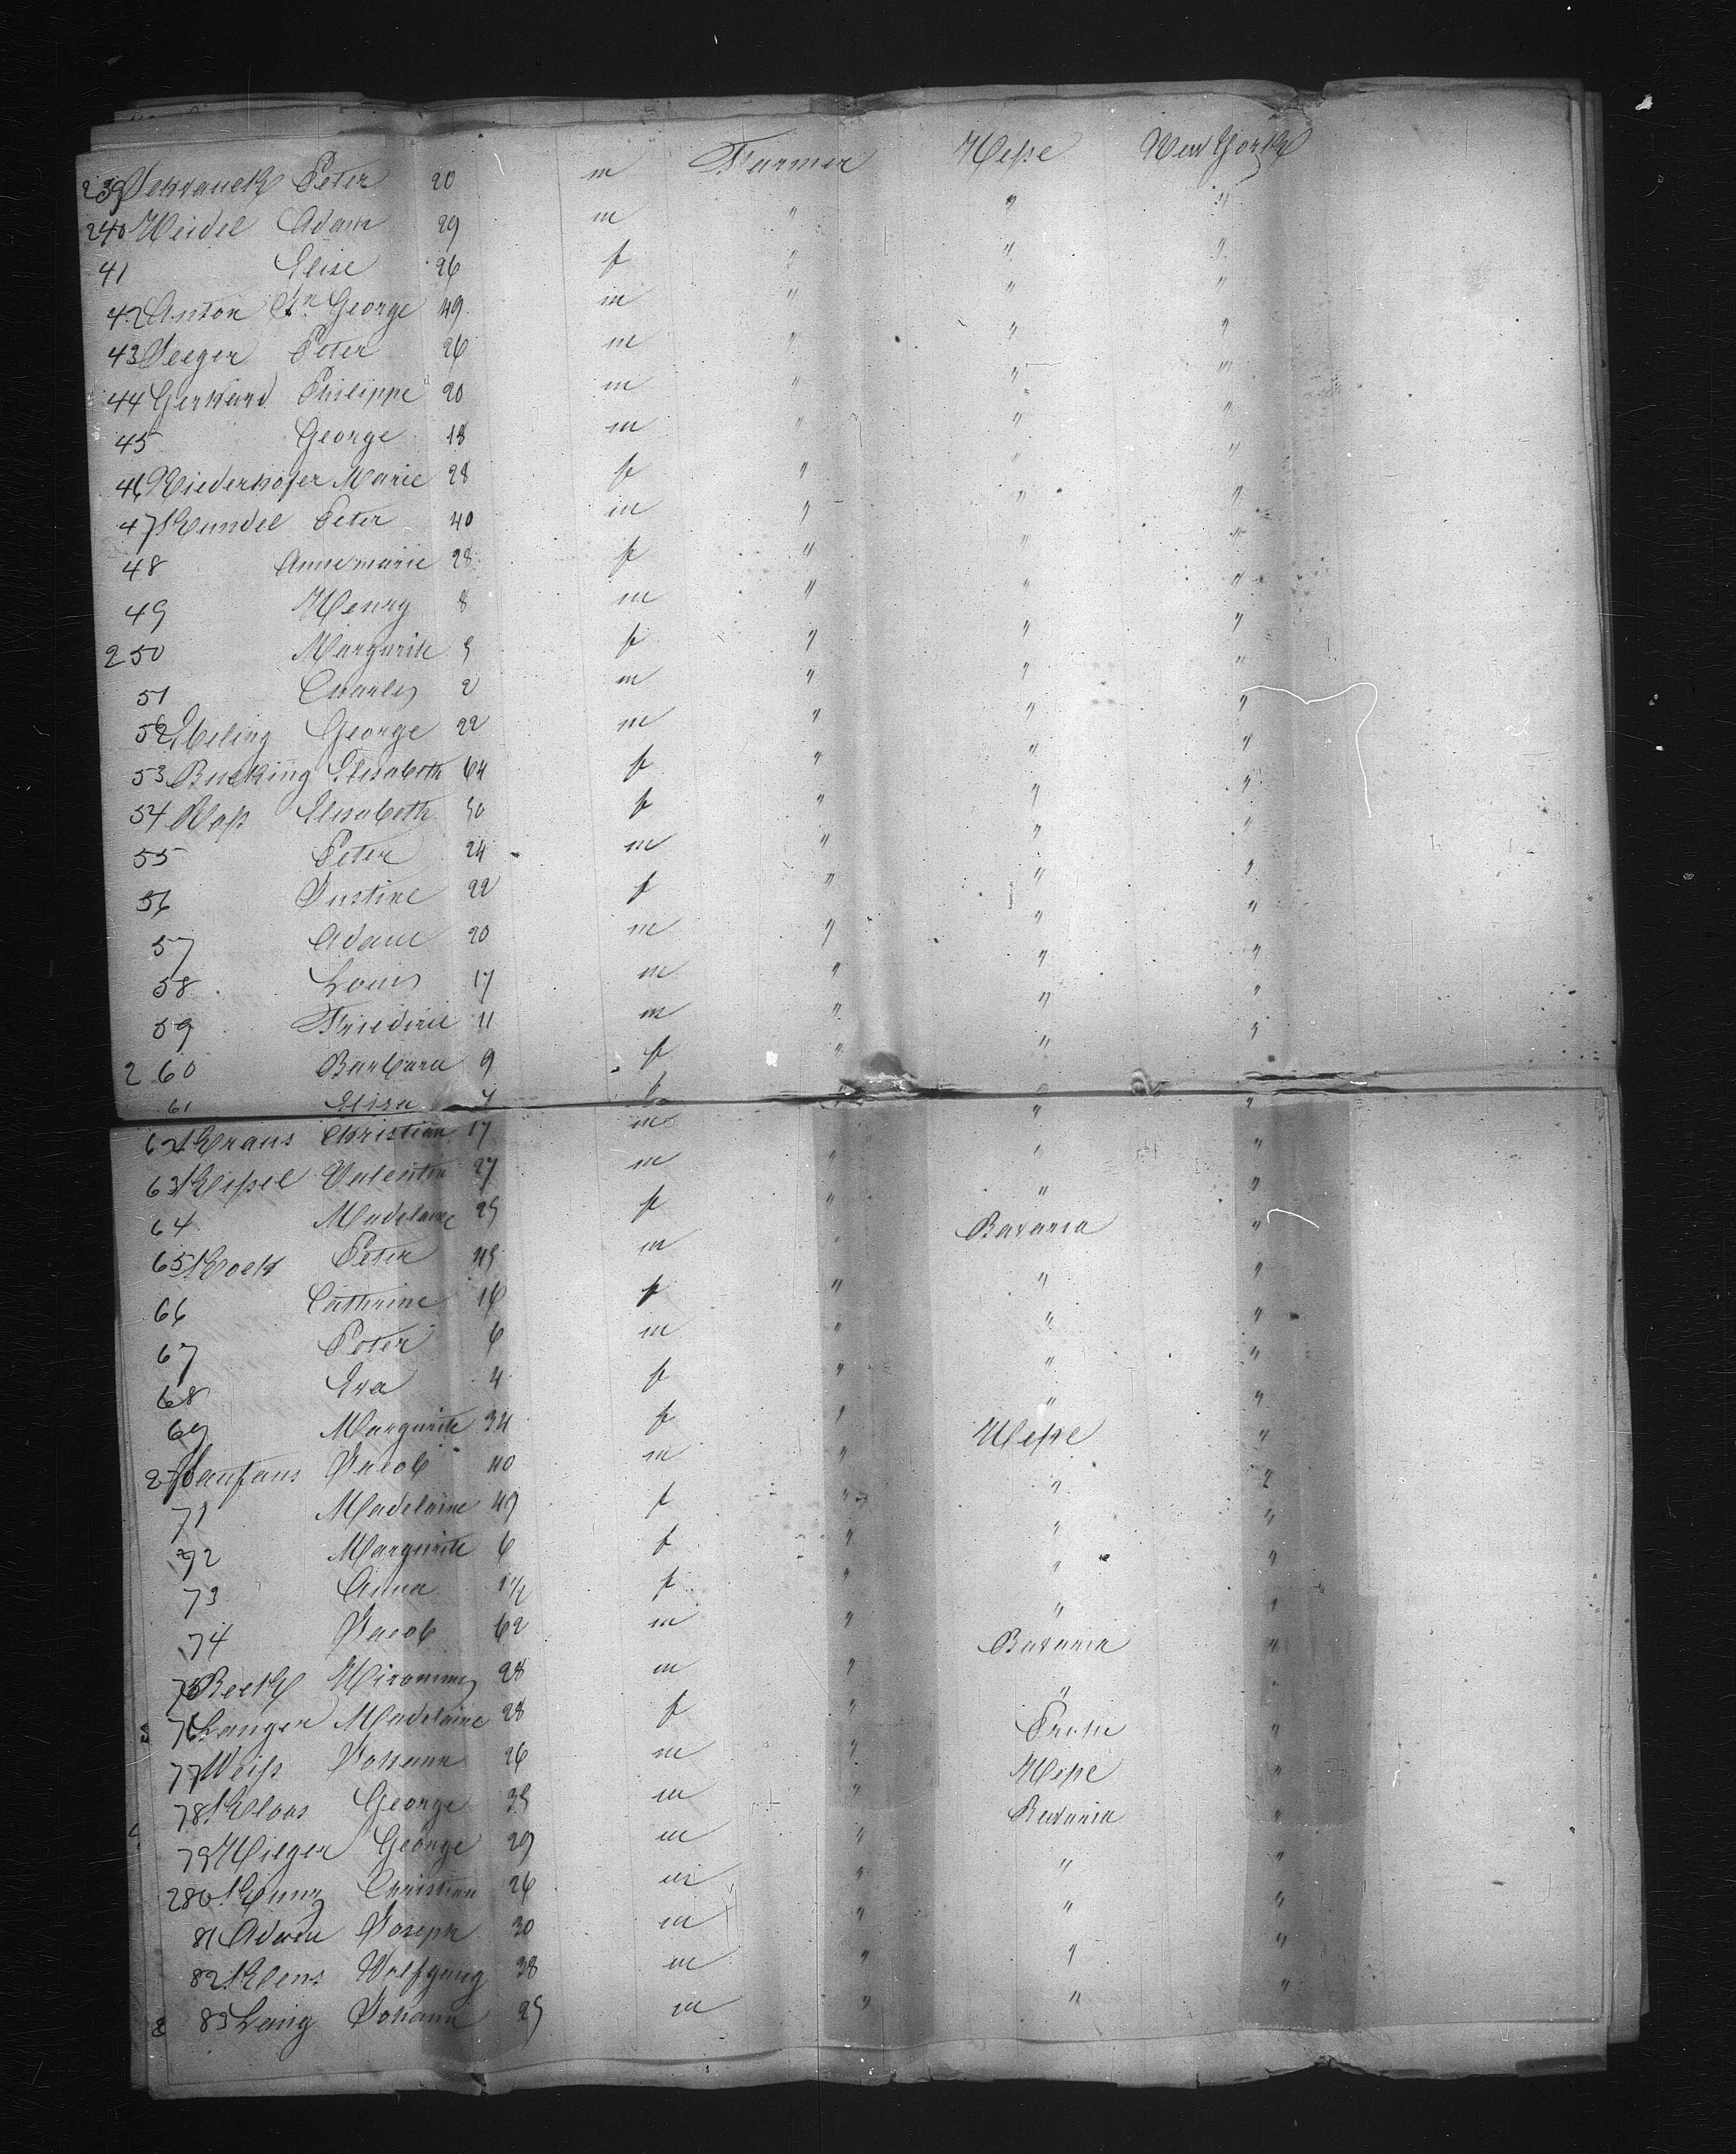 239 Schranck Peter 20 m Farmer Heße New York
240 Weidel Adam 29 m " " "
41 Elise 26 f " " "
42 Anton Fr. George 49 m " " "
43 Seeger Peter 26 m " " "
44 Gerhard Philippe 20 m " " "
45 George 18 m " " "
46 Niederhofer Marie 28 f " " "
47 Kundel Peter 40 m " " "
48 Annemarie 28 f " " "
49 Henry 8 m " " "
250 Margurite 5 f " " "
51 Charles 2 m " " "
52 Ebeling George 22 m " " "
53 Bucking Elisabeth 64 f " " "
54 Elisabeth 50 f " " "
55 Peter 24 m " " "
56 Justine 22 f " " "
57 Adam 20 m " " "
58 Louis 17 m " " "
59 Friedric 11 m " " "
260 Barbara 9 f " " "
61 Elisa 7 f " "
62 Kraus Christian 17 m " "
63 Keißel Valentin 27 m " " "
64 Madelaine 25 f " " "
65 Koch Peter 45 m " Bavaria "
66 Cathrine 16 f " " "
67 Peter 6 m " " "
68 Eva 4 f " " "
69 Margurite 34 f " " "
270 Jacob 40 m " Heße "
71 Madelaine 49 f " " "
72 Margurite 6 f " " "
73 Anna 1 1/2 f " " "
74 Jacob 62 m " " "
75 Beck Hironimus 28 m " Bavaria "
76 Langer Madelaine 28 f " " "
77 Weiß Johann 26 m " "
78 Kloos George 35 m " Heße "
79 Hilger George 29 m " Bavaria "
280 Kunz Christian 26 m " " "
81 Joseph 30 m " " "
82 Klens Wolfgang 38 m " " "
83 Lang Johann 25 m " " "